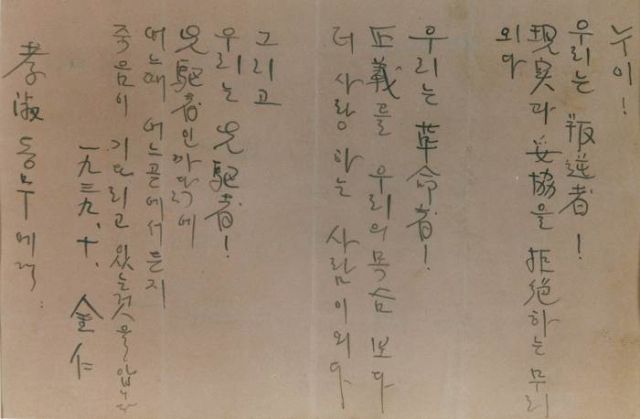 누이!
우리는 叛逆者!
現実과 妥協을 拒絶하는 무리
외다
우리는 革命者!
正義를 우리의 목숨 보다
더 사랑 하는 사람이외다
그리고
우리는 先驅者!
先驅者인 까닭에
어느때 어느곧에서든지
죽음이 기다리고 있는것을 압니다
一九三九、十、 金仁
孝淑동무에게.